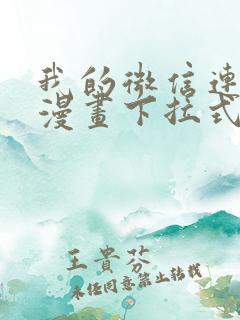 我的微信連
漫畫下拉式
王貴芬
未经同意禁止转载